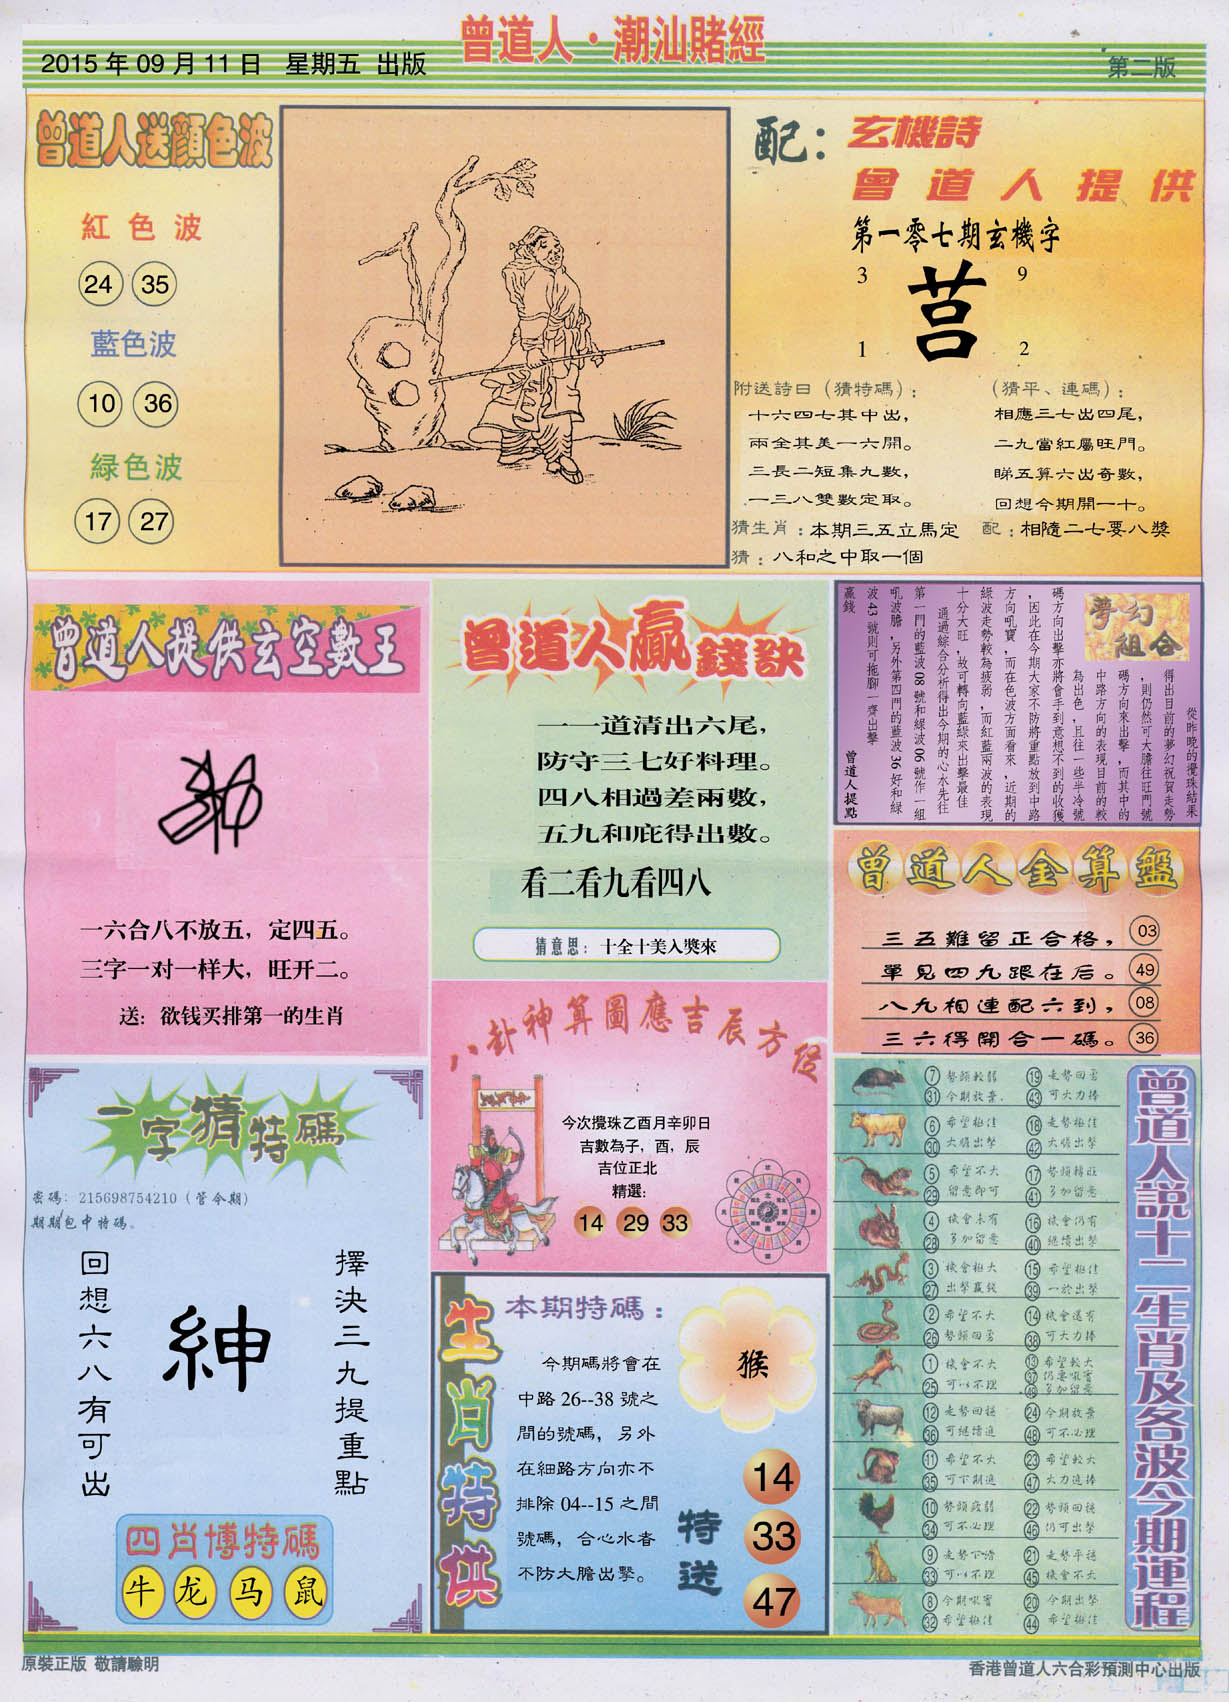 曾道人·潮汕賭經
2015年09月11日 星期五 出版
第二版
曾道人送顏色波
紅色波
24 35
藍色波
10 36
緑色波
17 27
配：玄機詩
曾道人提供
第一零七期玄機字
3 9
莒
1 2
附送詩曰（猜特碼）：
十六四七其中出，
兩全其美一六開。
三長二短集九數，
一三八雙數定取。
（猜平、連碼）：
相應三七出四尾，
二九當紅屬旺門。
睇五算六出奇數，
回想今期開一十。
猜生肖：本期三五立馬定
配：相隨二七要八獎
猜：八和之中取一個
曾道人提供玄空數王
一六合八不放五，定四五。
三字一对一样大，旺开二。
送：欲钱买排第一的生肖
曾道人贏錢訣
一一道清出六尾，
防守三七好料理。
四八相過差兩數，
五九和庇得出數。
看二看九看四八
猜意思：十全十美入獎來
夢幻組合
從昨晚的攪珠結果
得出目前的夢幻祝賀走勢
，則仍然可大膽往旺門號
碼方向來出擊，而其中的
中路方向的表現目前的較
為出色，且往一些半冷號
碼方向出擊亦將會手到意想不到的收獲
，因此在今期大家不防將重點放到中路
方向吼寶，而在色波方面看來，近期的
綠波走勢較為疲弱，而紅藍兩波的表現
十分大旺，故可轉向藍綠來出擊最佳
通過綜合分析得出今期的心水先往
第一門的藍波08號和綠波06號作一組
吼波膽，另外第四門的藍波36好和綠
波43號則可拖腳一齊出擊
贏錢
曾道人提點
曾道人金算盤
三五難留正合格，03
單見四九跟在后。49
八九相連配六到，08
三六得開合一碼。36
八卦神算圖應吉辰方位
今次攪珠乙酉月辛卯日
吉數為子，酉，辰
吉位正北
精選：
14 29 33
一字猜特碼
密碼：215698754210（管令期）
期期包中特碼。
擇決三九提重點
紳
回想六八有可出
四肖博特碼
牛 龙 马 鼠
生肖特供
本期特碼：
今期碼將會在
中路26--38號之
間的號碼，另外
在細路方向亦不
排除04--15之間
號碼，合心水者
不防大膽出擊。
猴
特送
14
33
47
曾道人説十二生肖及各波今期運程
7 勢頭較弱 19 走勢回勇
31 今期放棄 43 可大力捧
6 希望極佳 18 走勢極佳
30 大膽出擊 42 大膽出擊
5 希望不大 17 勢頭轉旺
29 留意即可 41 多加留意
4 機會未有 16 機會仍有
28 多加留意 40 繼續出擊
3 機會極大 15 希望極佳
27 出擊贏錢 39 一於出擊
2 希望不大 14 機會還有
26 勢頭回勇 38 可大力捧
1 機會不大 13 希望較大
25 可以不理 37 仍要吸寶
49 多加留意
12 走勢回穩 24 今期放棄
36 可繼續追 48 可不必理
11 希望不大 23 希望較大
35 可下期追 47 大力追捧
10 勢頭疲弱 22 勢頭回穩
34 可不必理 46 仍可出擊
9 走勢下滑 21 走勢平穩
33 可以不理 45 機會不大
8 今期吸寶 20 今期出擊
32 希望極佳 44 希望極佳
原裝正版 敬請驗明
香港曾道人六合彩預測中心出版